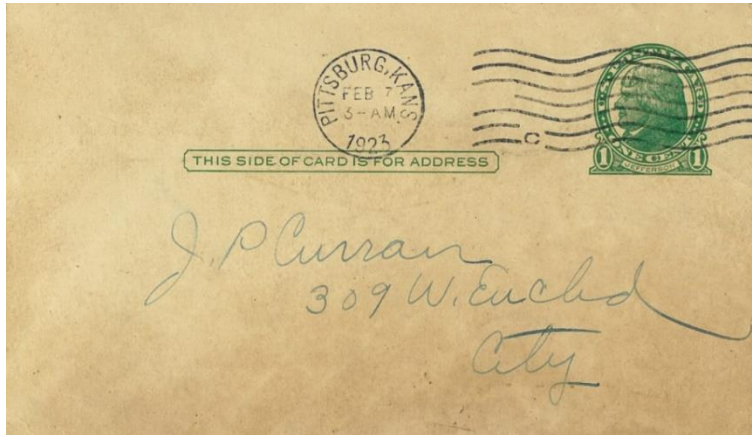 PITTSBURG, KANS.
FEB 7
3-AM
1923
C
U.S. POSTAL CARD
ONE CENT
1 JEFFERSON 1
THIS SIDE OF CARD IS FOR ADDRESS
J. P Curran
309 W. Euclid
City